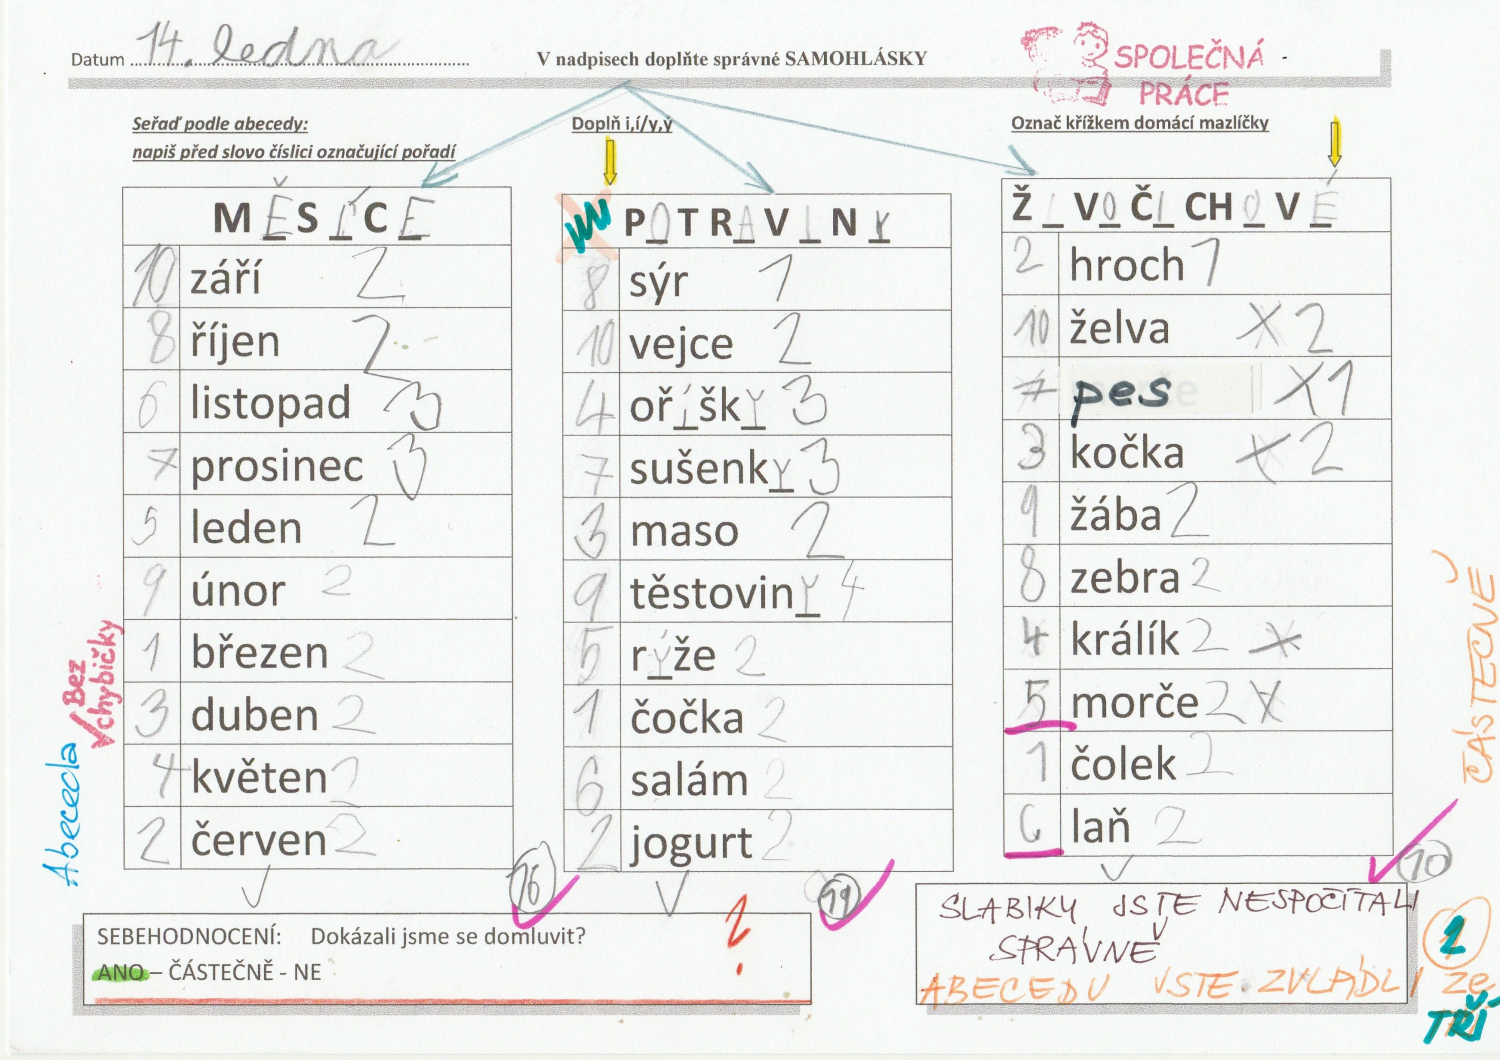 Datum 14. ledna
V nadpisech doplňte správné SAMOHLÁSKY
SPOLEČNÁ
PRÁCE
Seřaď podle abecedy:
napiš před slovo číslici označující pořadí
MĚSÍCE
10 září 2
8 říjen 2
6 listopad 3
7 prosinec 3
5 leden 2
9 únor 2
1 březen 2
3 duben 2
4 květen 2
2 červen 2
16
Abeceda
Bez
chybičky
Doplň i,í/y,ý
POTRAVINY
8 sýr 1
10 vejce 2
4 oříšky 3
7 sušenky 3
3 maso 2
9 těstoviny 4
5 rýže 2
1 čočka 2
6 salám 2
2 jogurt 2
19
Označ křížkem domácí mazlíčky
ŽIVOČICHOVÉ
2 hroch 1
10 želva X 2
7 pes X 1
3 kočka X 2
9 žába 2
8 zebra 2
4 králík 2 X
5 morče 2 X
1 čolek 2
6 laň 2
10
ČÁSTEČNĚ
SEBEHODNOCENÍ: Dokázali jsme se domluvit?
ANO – ČÁSTEČNĚ - NE
SLABIKY JSTE NESPOČÍTALI
SPRÁVNĚ
ABECEDU JSTE ZVLÁDLI ZE
TŘÍ
1